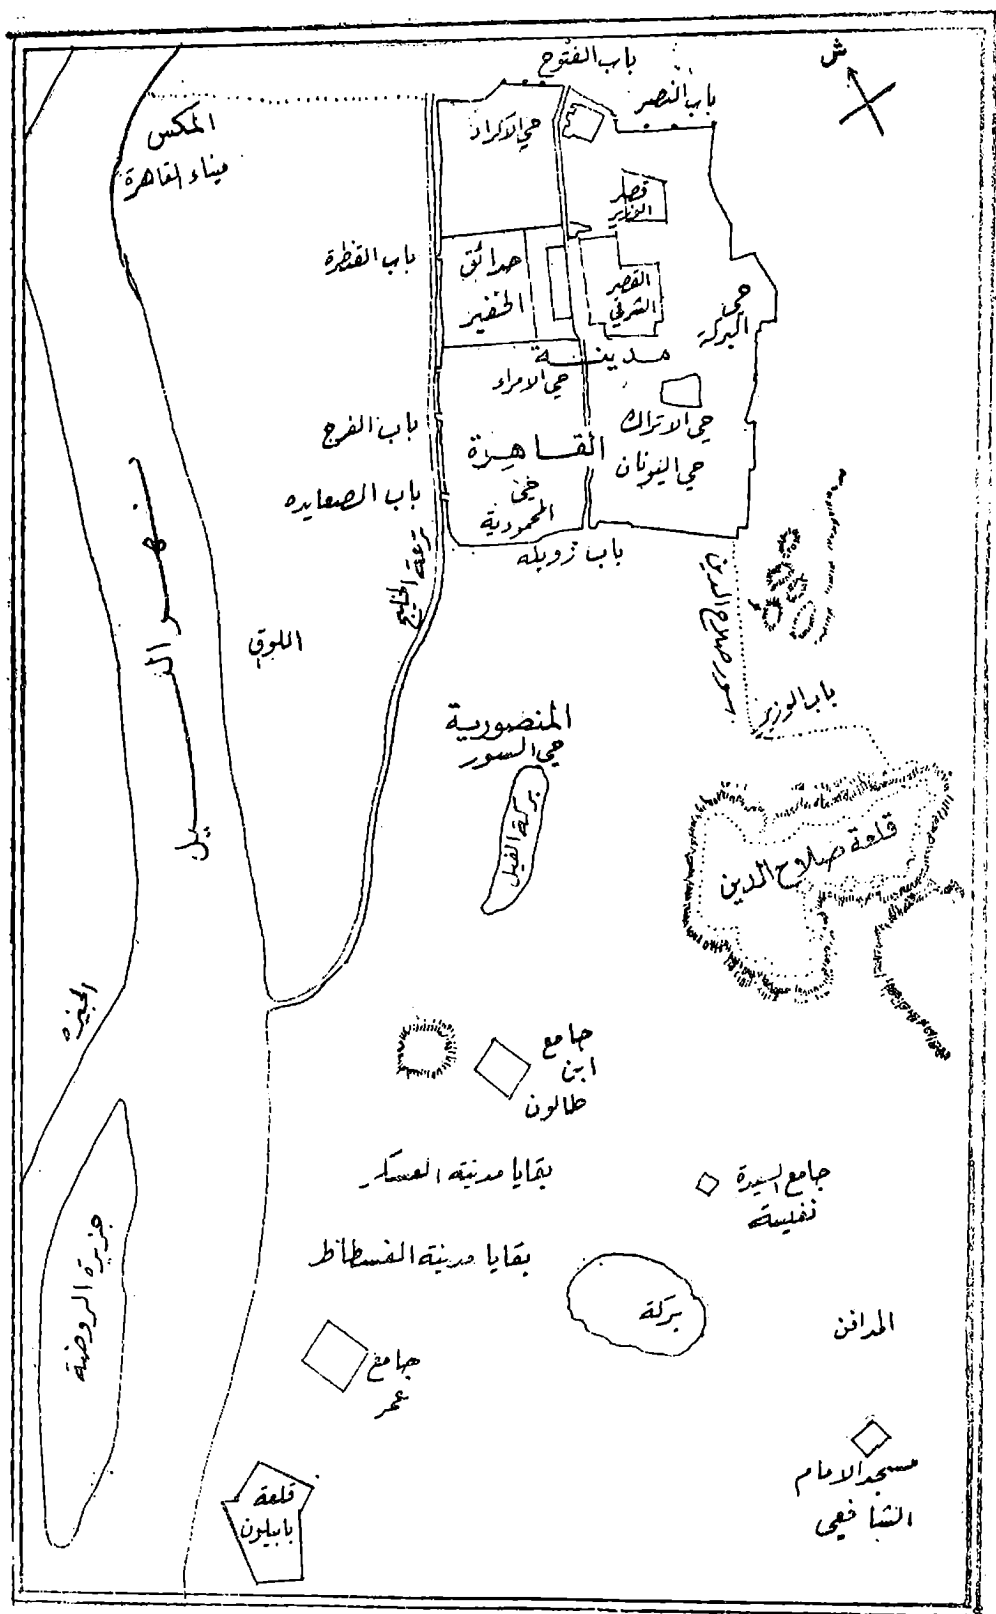 ش
باب الفتوح
باب النصر
المكس
ميناء القاهرة
حي الاكراد
قصر
الوزير
باب القنطرة
حدائق
الخفير
القصر
الشرقي
حي
البركه
مدينــــة
حي الامراء
باب الفرج
القــاهـرة
حي الاتراك
حي اليونان
باب الصعايده
حي
المحمودية
باب زويله
ترعة الخليج
نـهـر النـيـل
اللوق
سور صلاح الدين
باب الوزير
المنصورية
حي السور
بركة الفيل
قلعة صلاح الدين
الجيزه
جامع
ابن
طالون
بقايا مدينة العسكر
جامع السيدة
نفيسة
بقايا مدينة الفسطاط
بركة
جزيرة الروضة
المدافن
جامع
عمر
مسجد الامام
الشافعي
قلعة
بابيلون